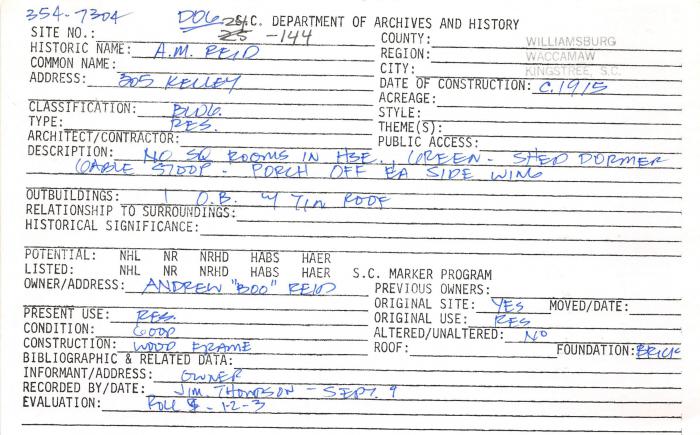 354-7304 DOG S.C. DEPARTMENT OF ARCHIVES AND HISTORY
SITE NO.: 25 -144 COUNTY: WILLIAMSBURG
HISTORIC NAME: A.M. REID REGION: WACCAMAW
COMMON NAME: CITY: KINGSTREE, S.C.
ADDRESS: 305 KELLEY DATE OF CONSTRUCTION: C.1915
ACREAGE:
CLASSIFICATION: BLDG. STYLE:
TYPE: RES. THEME(S):
ARCHITECT/CONTRACTOR: PUBLIC ACCESS:
DESCRIPTION: NO SQ ROOMS IN HSE., GREEN - SHED DORMER
GABLE STOOP - PORCH OFF EA SIDE WING
OUTBUILDINGS: 1 O.B. W/ TIN ROOF
RELATIONSHIP TO SURROUNDINGS:
HISTORICAL SIGNIFICANCE:
POTENTIAL: NHL NR NRHD HABS HAER
LISTED: NHL NR NRHD HABS HAER S.C. MARKER PROGRAM
OWNER/ADDRESS: ANDREW "BOO" REID PREVIOUS OWNERS:
ORIGINAL SITE: YES MOVED/DATE:
PRESENT USE: RES. ORIGINAL USE: RES
CONDITION: GOOD ALTERED/UNALTERED: NO
CONSTRUCTION: WOOD FRAME ROOF: FOUNDATION: BRICK
BIBLIOGRAPHIC & RELATED DATA:
INFORMANT/ADDRESS: OWNER
RECORDED BY/DATE: JIM THOMPSON - SEPT. 9
EVALUATION: ROLL - 1-2-3